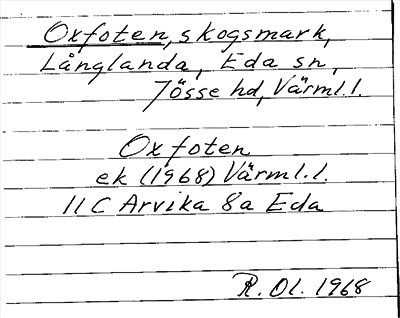 Oxfoten, skogsmark,
Långlanda, Eda sn,
Jösse hd, Värml.l.
Oxfoten
ek (1968) Värml.l.
11C Arvika 8a Eda
R. Ol. 1968